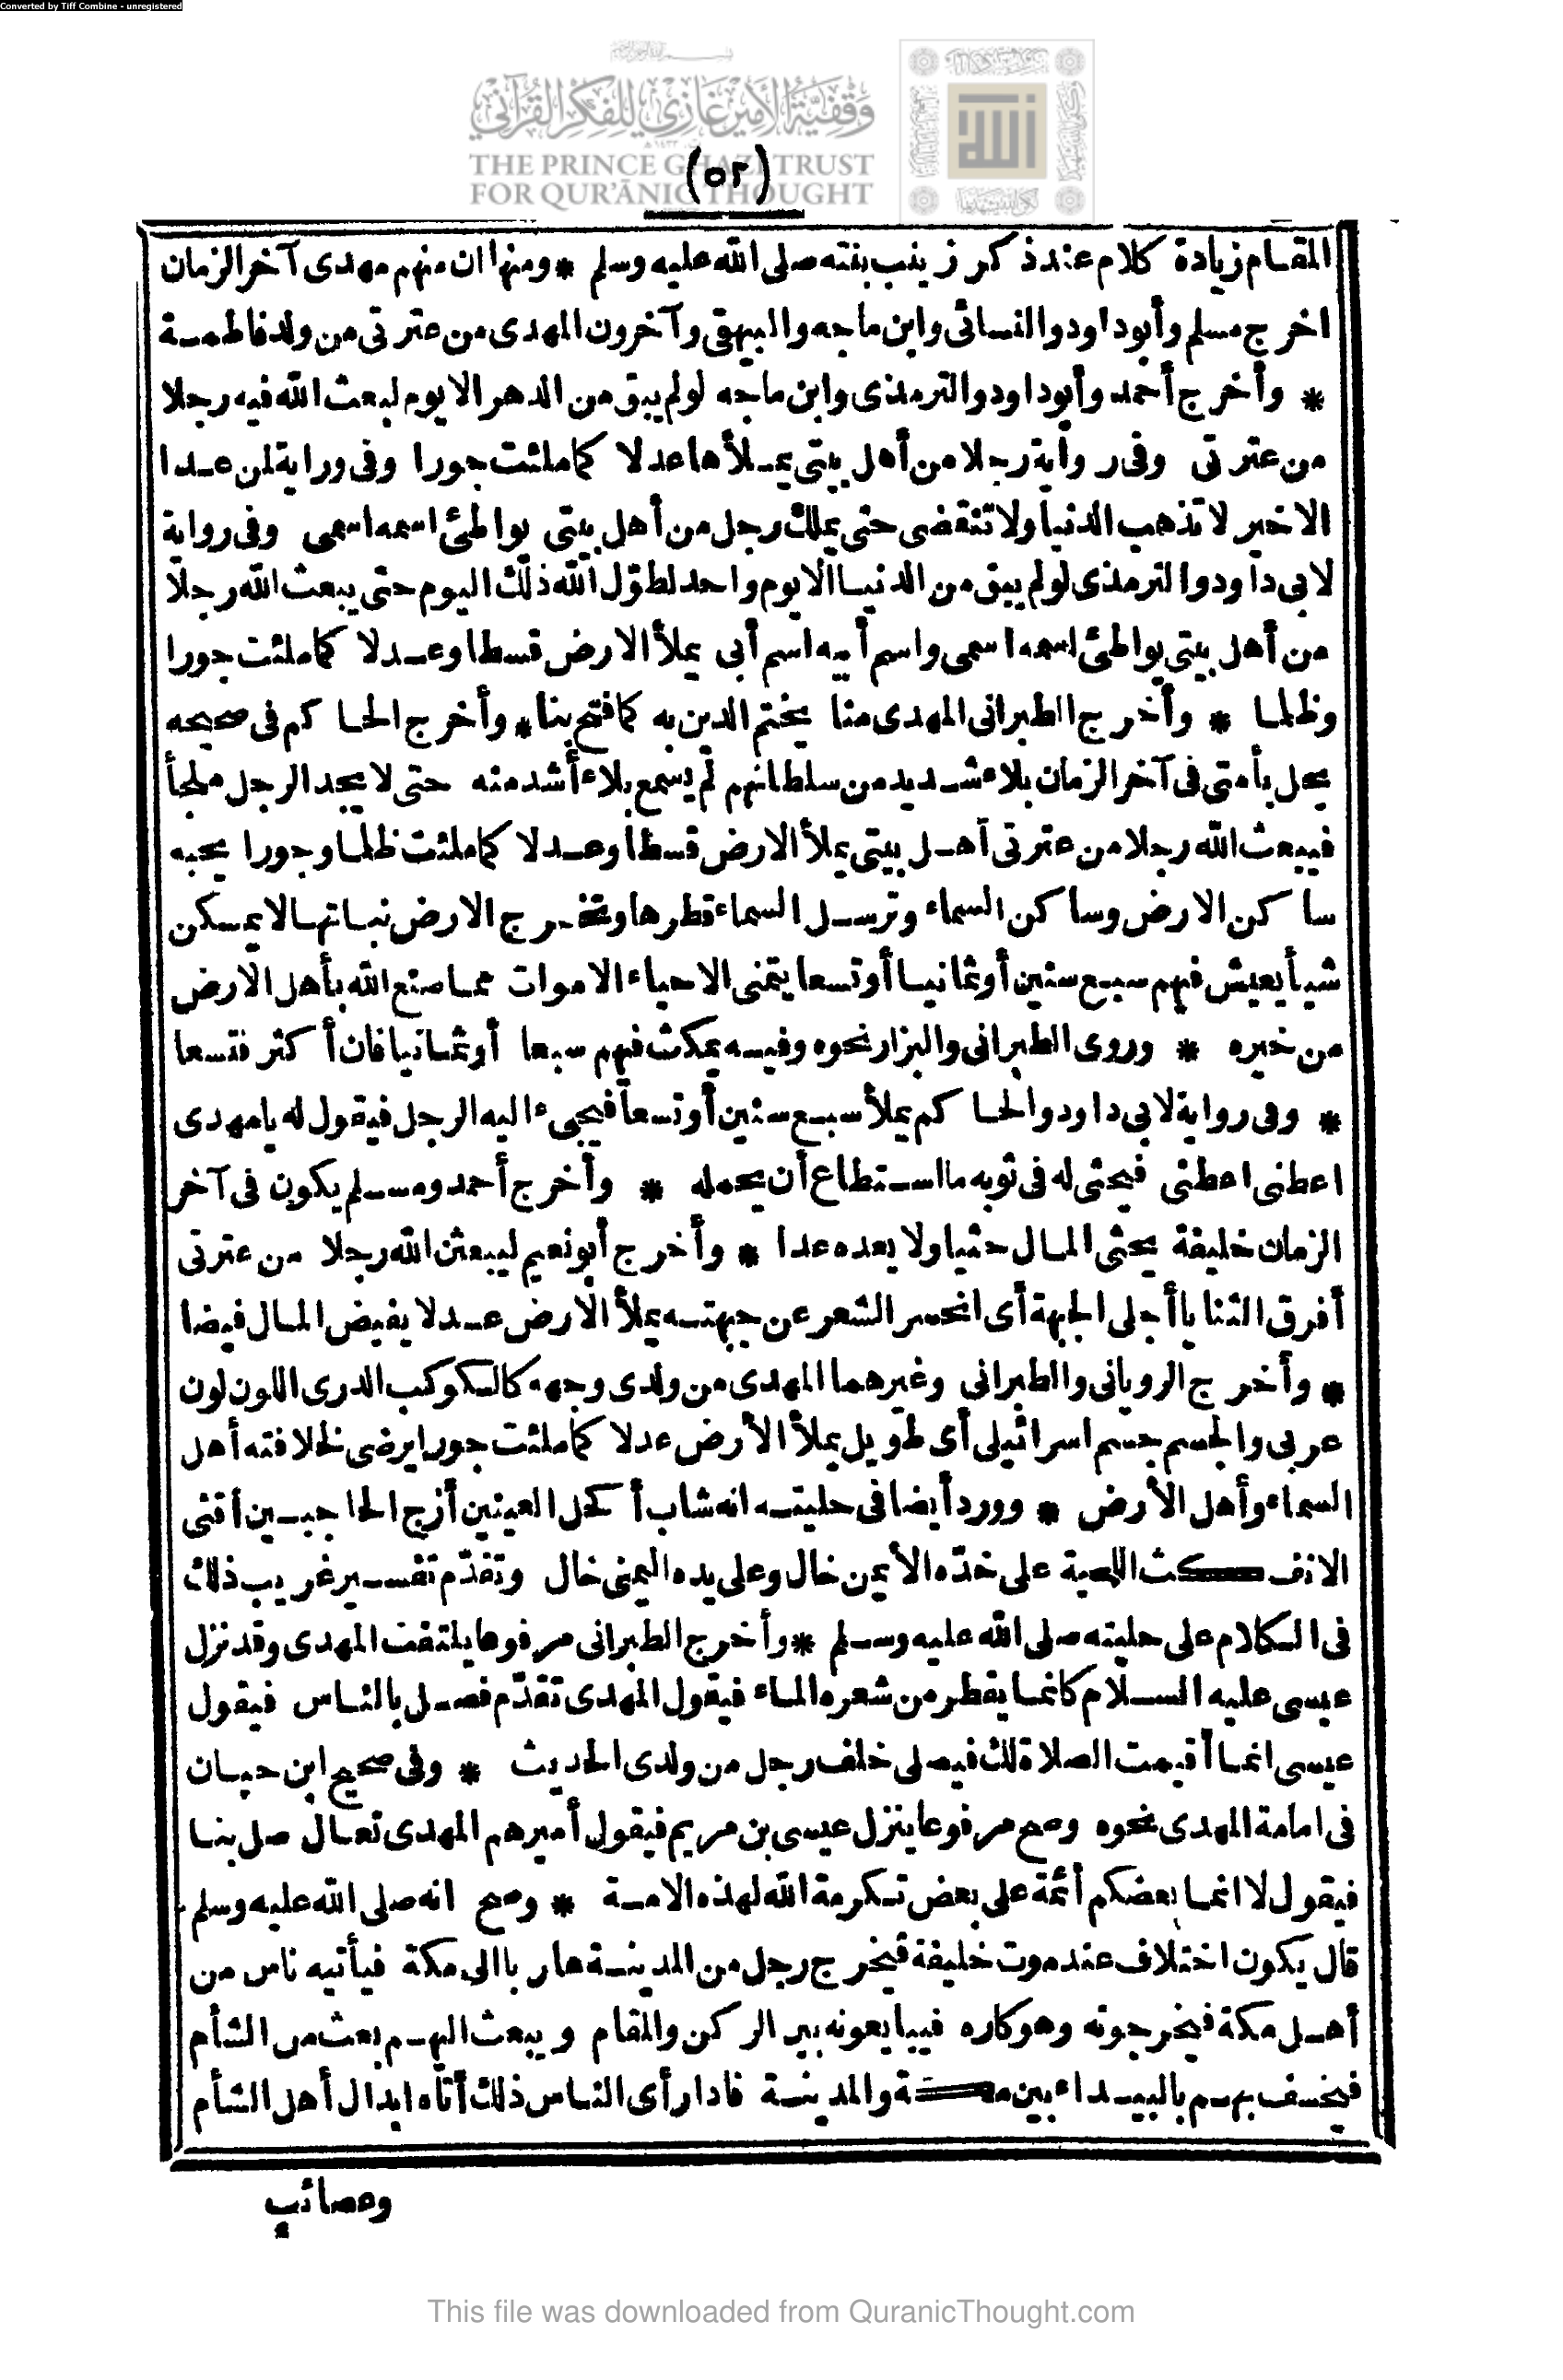 Converted by Tiff Combine - unregistered
وقفية الأمير غازي للفكر القرآني
THE PRINCE GHAZI TRUST
FOR QUR'ĀNIC THOUGHT
(٥٢)
المقام زيادة كلام عند ذكر زينب بنته صلى الله عليه وسلم * ومنها ان منهم مهدى آخر الزمان
اخرج مسلم وأبوداود والنسائى وابن ماجه والبيهقى وآخرون المهدى من عترتى من ولد فاطمة
* وأخرج أحمد وأبوداود والترمذى وابن ماجه لو لم يبق من الدهر الا يوم لبعث الله فيه رجلا
من عترتى وفى رواية رجلا من أهل بيتى يملأها عدلا كما ملئت جورا وفى رواية لمن عدا
الاخير لا تذهب الدنيا ولا تنقضى حتى يملك رجل من أهل بيتى يواطئ اسمه اسمى وفى رواية
لابى داود والترمذى لو لم يبق من الدنيا الا يوم واحد لطوّل الله ذلك اليوم حتى يبعث الله رجلا
من أهل بيتى يواطئ اسمه اسمى واسم أبيه اسم أبى يملأ الارض قسطا وعدلا كما ملئت جورا
وظلما * وأخرج الطبرانى المهدى منا يختم الدين به كما فتح بنا * وأخرج الحاكم فى صحيحه
يحل بأمتى فى آخر الزمان بلاء شديد من سلطانهم لم يسمع بلاء أشد منه حتى لا يجد الرجل ملجأ
فيبعث الله رجلا من عترتى أهل بيتى يملأ الارض قسطا وعدلا كما ملئت ظلما وجورا يحبه
ساكن الارض وساكن السماء وترسل السماء قطرها وتخرج الارض نباتها لا يمسكن
شيأ يعيش فيهم سبع سنين أو ثمانيا أو تسعا يتمنى الاحياء الاموات مما صنع الله بأهل الارض
من خيره * وروى الطبرانى والبزار نحوه وفيه يمكث فيهم سبعا أو ثمانيا فان أكثر فتسعا
* وفى رواية لابى داود والحاكم يملأ سبع سنين أو تسعا فيجىء اليه الرجل فيقول له يا مهدى
اعطنى اعطنى فيحثى له فى ثوبه ما استطاع أن يحمله * وأخرج أحمد ومسلم يكون فى آخر
الزمان خليفة يحثى المال حثيا ولا يعده عدا * وأخرج أبونعيم ليبعثن الله رجلا من عترتى
أفرق الثنايا أجلى الجبهة أى انحسر الشعر عن جبهته يملأ الارض عدلا يفيض المال فيضا
* وأخرج الرويانى والطبرانى وغيرهما المهدى من ولدى وجهه كالكوكب الدرى اللون لون
عربى والجسم جسم اسرائيلى أى طويل يملأ الأرض عدلا كما ملئت جورا يرضى لخلافته أهل
السماء وأهل الأرض * وورد أيضا فى حليته انه شاب أكحل العينين أزج الحاجبين أقنى
الانف كث اللحية على خدّه الأيمن خال وعلى يده اليمنى خال وتقدّم تفسير غريب ذلك
فى الكلام على حليته صلى الله عليه وسلم * وأخرج الطبرانى مرفوعا يلتفت المهدى وقد نزل
عيسى عليه السلام كانما يقطر من شعره الماء فيقول المهدى تقدّم فصل بالناس فيقول
عيسى انما أقيمت الصلاة لك فيصلى خلف رجل من ولدى الحديث * وفى صحيح ابن حبان
فى امامة المهدى نحوه وصح مرفوعا ينزل عيسى بن مريم فيقول أميرهم المهدى تعال صل بنا
فيقول لا انما بعضكم أئمة على بعض تكرمة الله لهذه الامة * وصح انه صلى الله عليه وسلم
قال يكون اختلاف عند موت خليفة فيخرج رجل من المدينة هاربا الى مكة فيأتيه ناس من
أهل مكة فيخرجونه وهو كاره فيبايعونه بين الركن والمقام ويبعث اليهم بعث من الشأم
فيخسف بهم بالبيداء بين مكة والمدينة فاذا رأى الناس ذلك أتاه ابدال أهل الشأم
وعصائب
This file was downloaded from QuranicThought.com